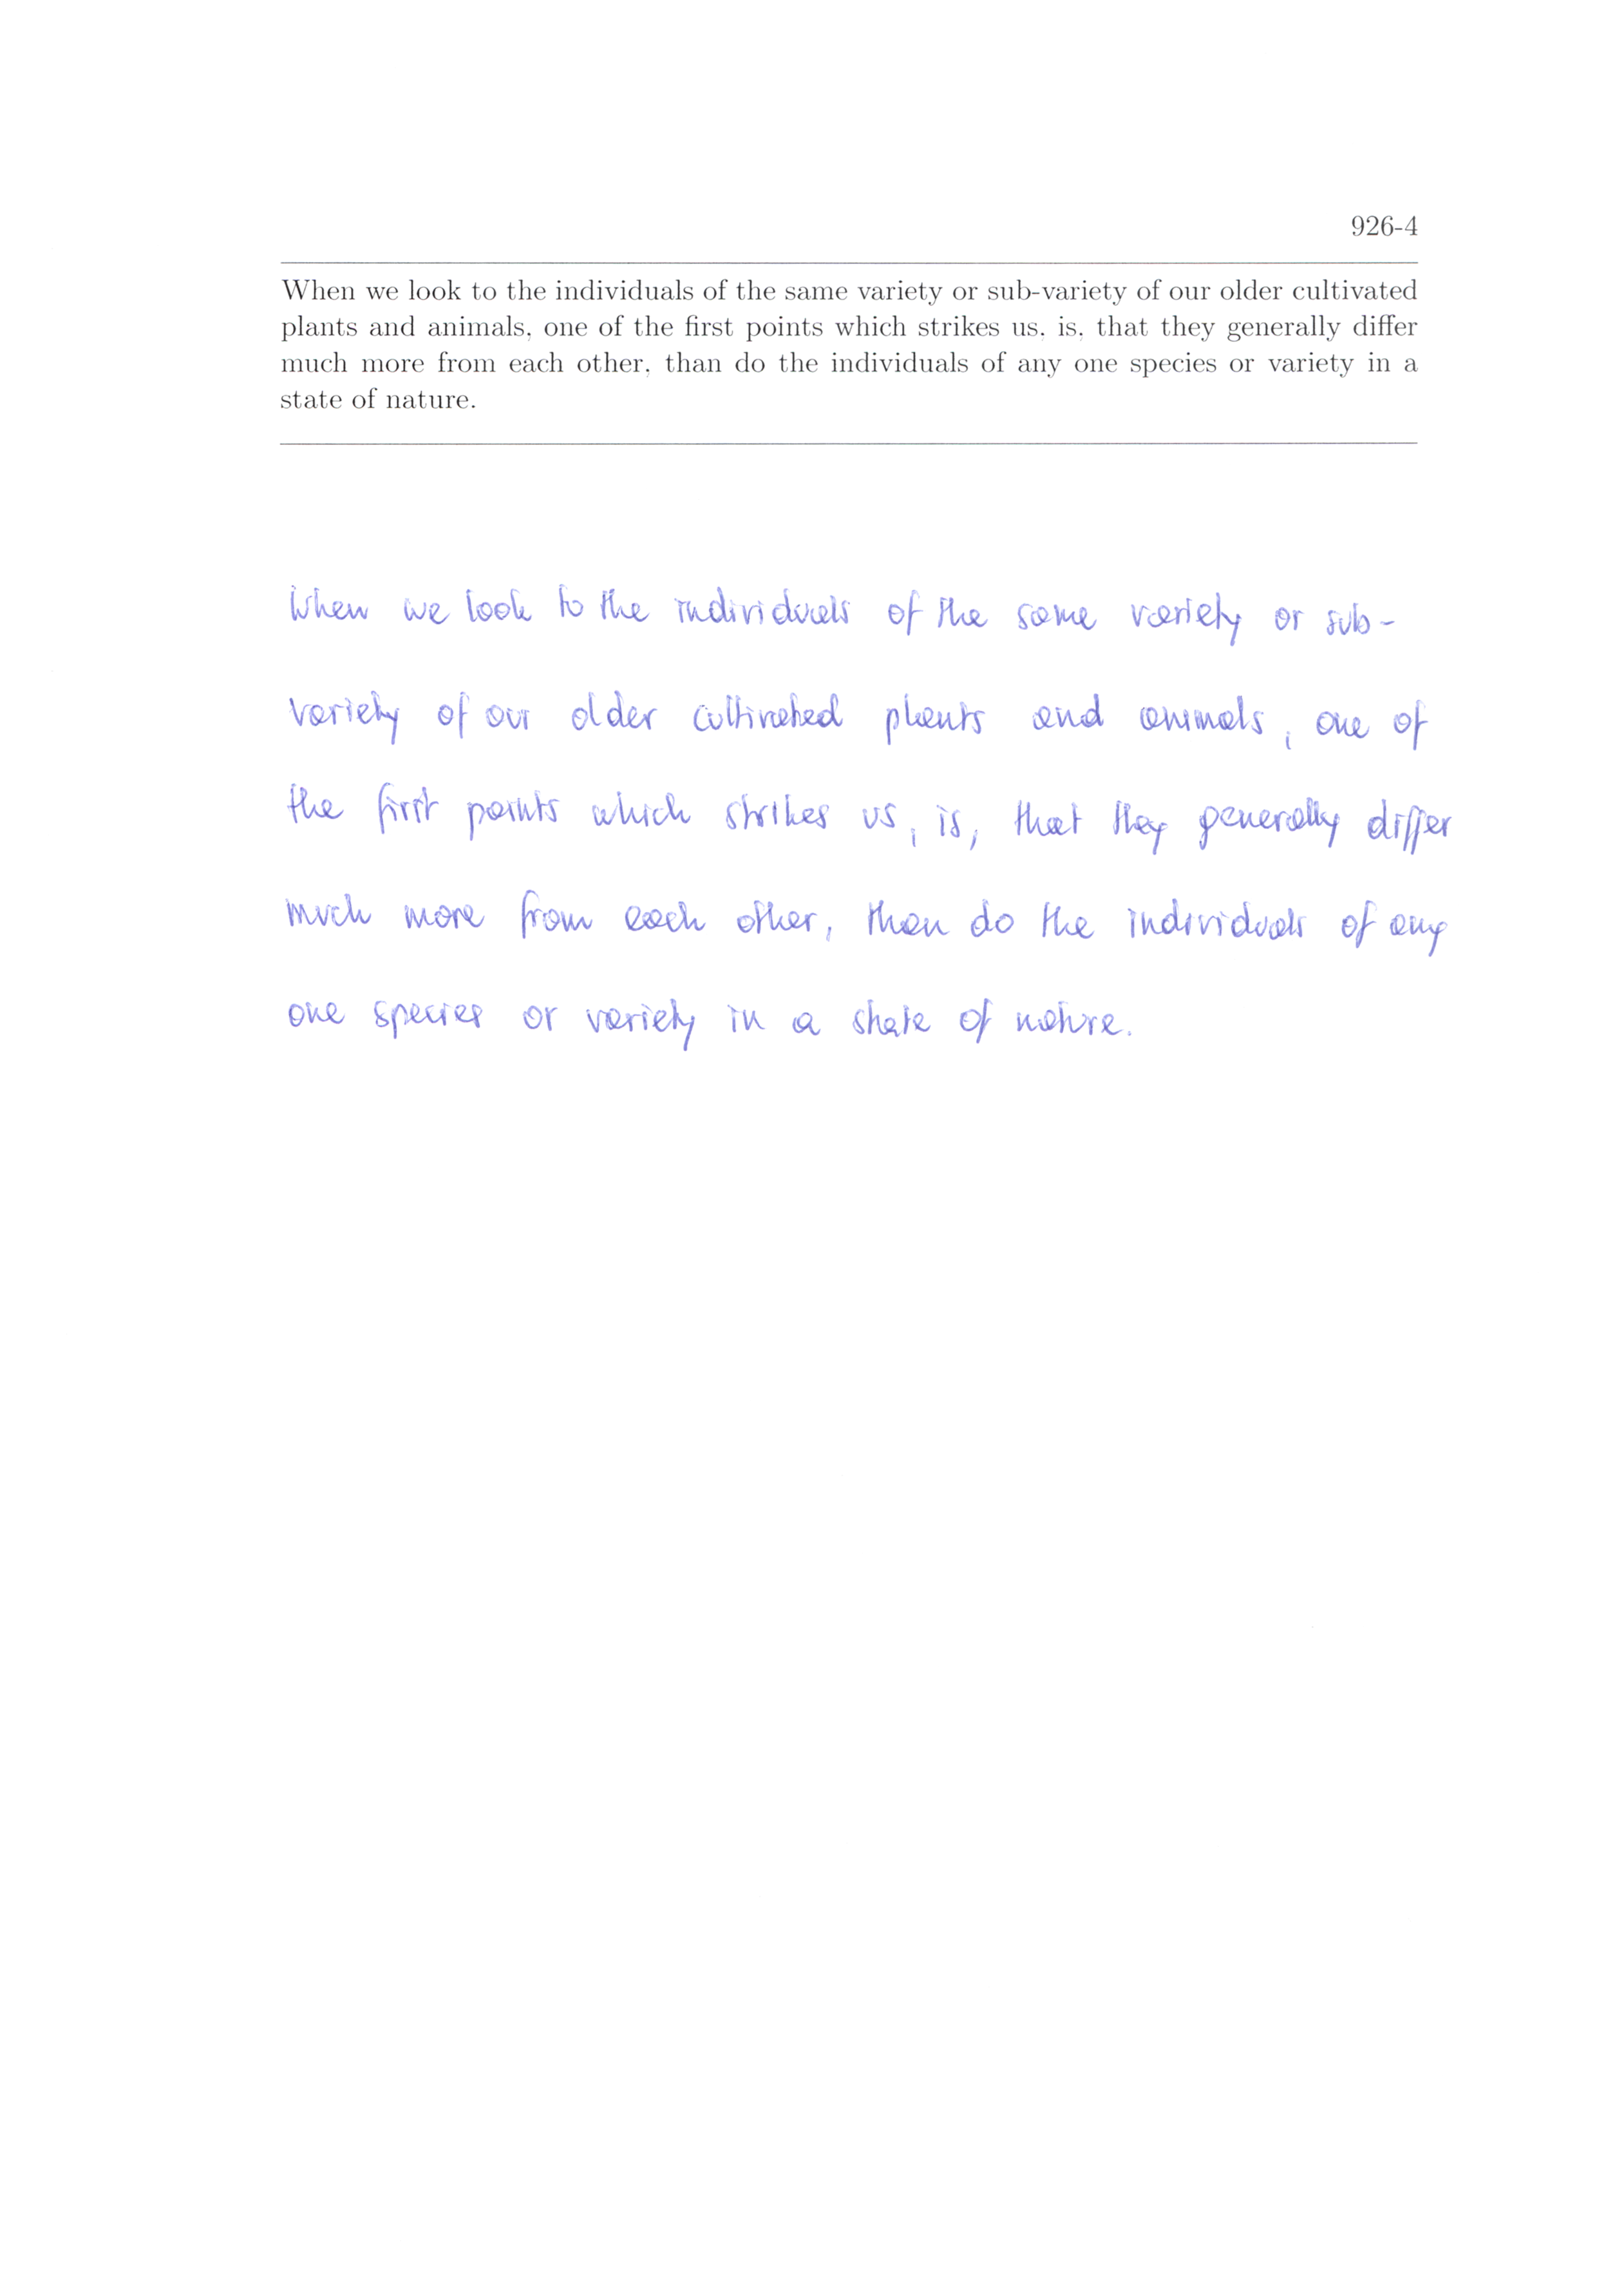 926-4
When we look to the individuals of the same variety or sub-variety of our older cultivated
plants and animals, one of the first points which strikes us, is, that they generally differ
much more from each other, than do the individuals of any one species or variety in a
state of nature.
When we look to the individuals of the same variety or sub-
variety of our older cultivated plants and animals, one of
the first points which strikes us, is, that they generally differ
much more from each other, than do the individuals of any
one species or variety in a state of nature.